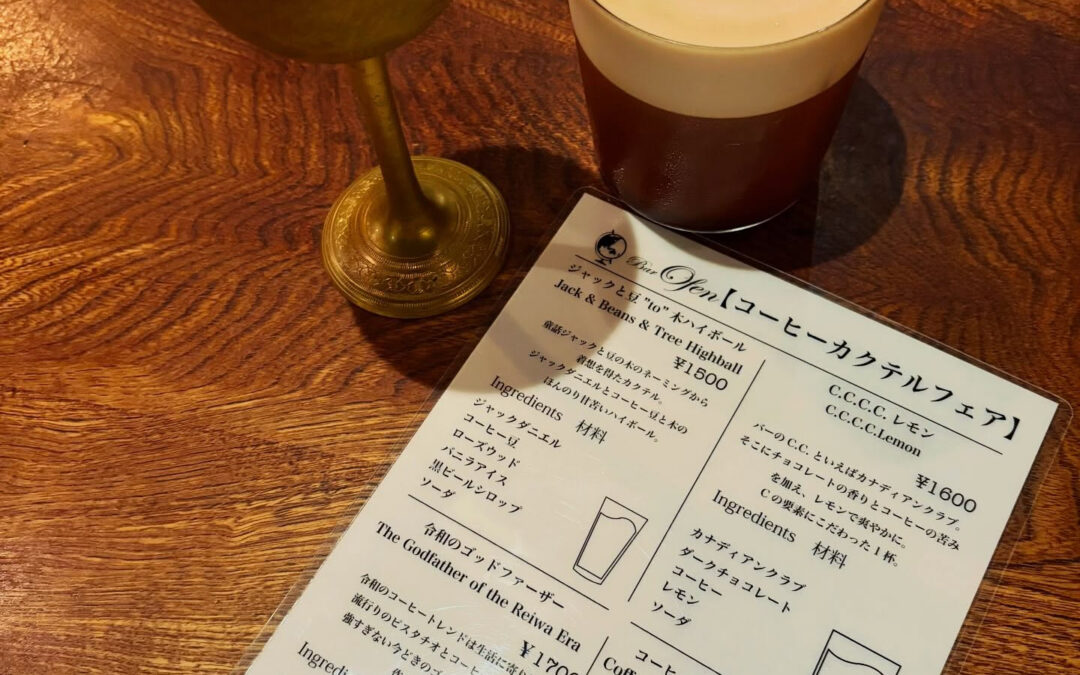 Bar Osen【コーヒーカクテルフェア】
ジャックと豆 "to" 木ハイボール
Jack & Beans & Tree Highball
¥1500
童話ジャックと豆の木のネーミングから
着想を得たカクテル。
ジャックダニエルとコーヒー豆と木の
ほんのり甘苦いハイボール。
Ingredients 材料
ジャックダニエル
コーヒー豆
ローズウッド
バニラアイス
黒ビールシロップ
ソーダ
C.C.C.C. レモン
C.C.C.C.Lemon
¥1600
バーの C.C. といえばカナディアンクラブ。
そこにチョコレートの香りとコーヒーの苦み
を加え、レモンで爽やかに。
C の要素にこだわった 1 杯。
Ingredients 材料
カナディアンクラブ
ダークチョコレート
コーヒー
レモン
ソーダ
令和のゴッドファーザー
The Godfather of the Reiwa Era
¥1700
令和のコーヒートレンドは生活に寄り
流行りのピスタチオとコーヒ
強すぎない今どきのゴ
Ingredi
コーヒー
Coff